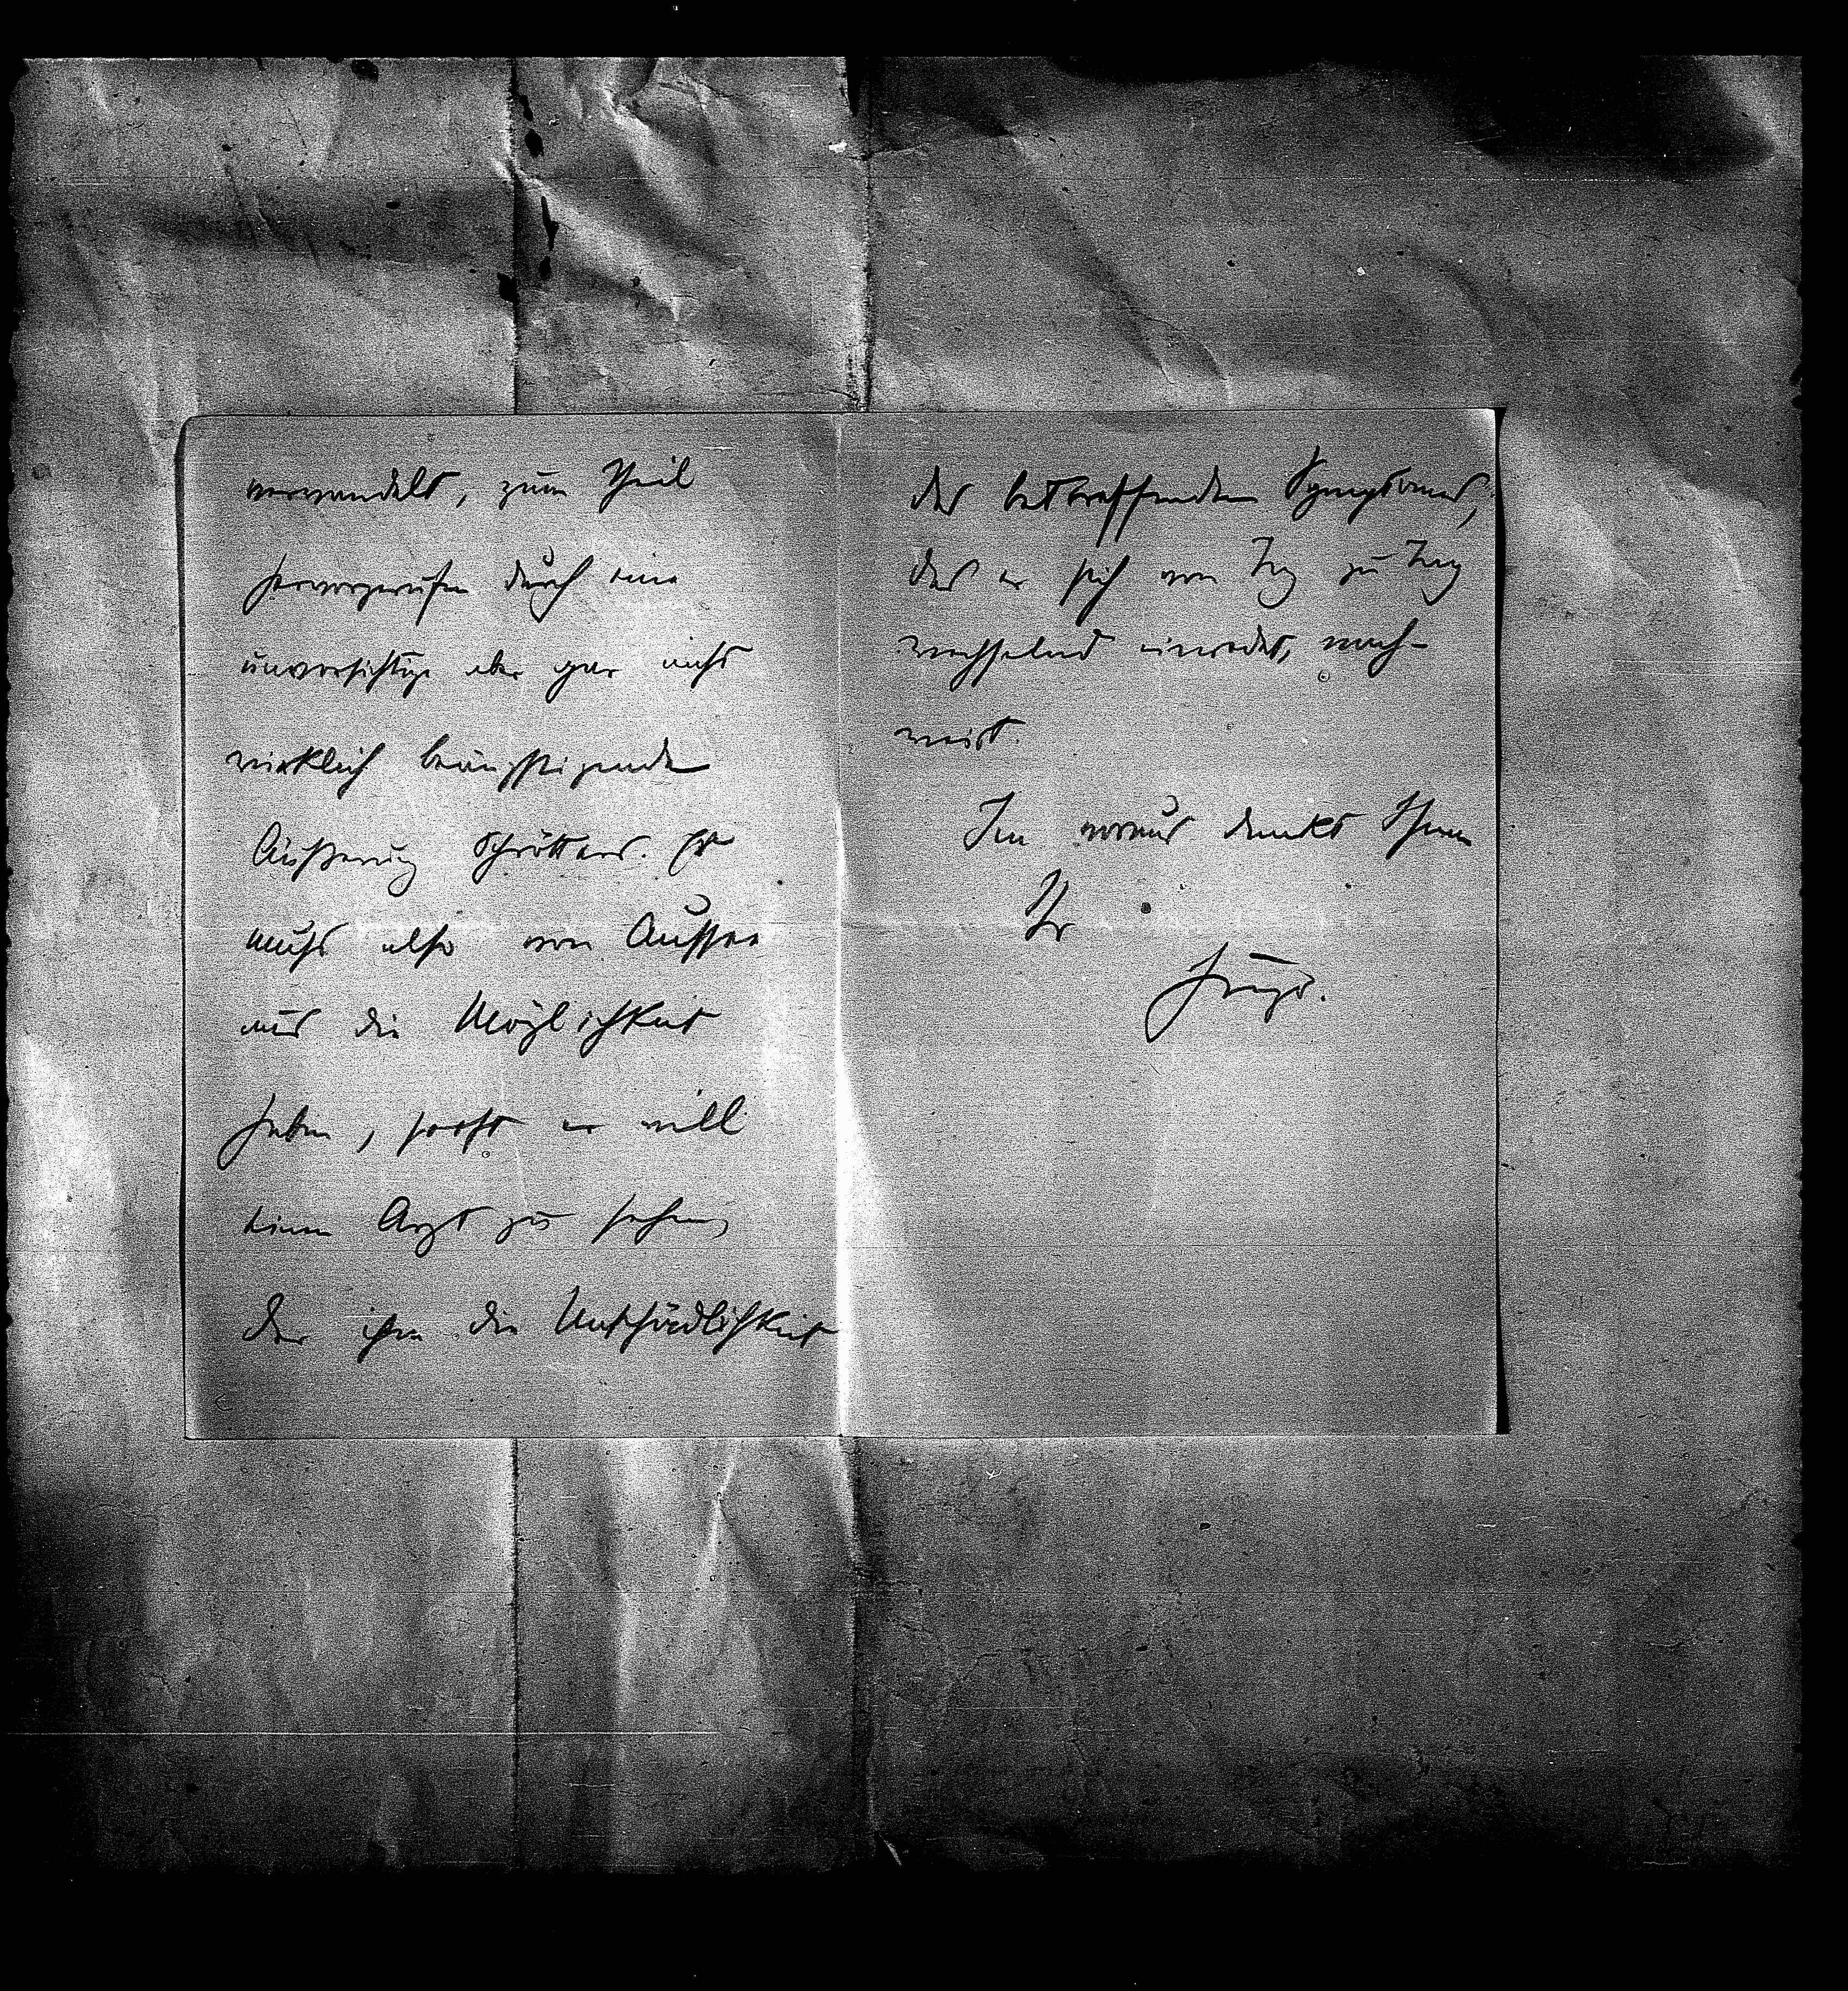 verwandelt, zum Theil
hervorgerufen durch eine
unvorsichtige aber gar nicht
wirklich beängstigende
Äußerung Schrötters. Er
muss also von Aussee
aus die Möglichkeit
haben, sooft er will
einen Arzt zu sehen,
der ihm die Unschädlichkeit
des betreffenden Symptomes,
das er sich von Tag zu Tag
wechselnd einredet, nach-
weist.
Im voraus dankt Ihnen
Ihr
Hugo.